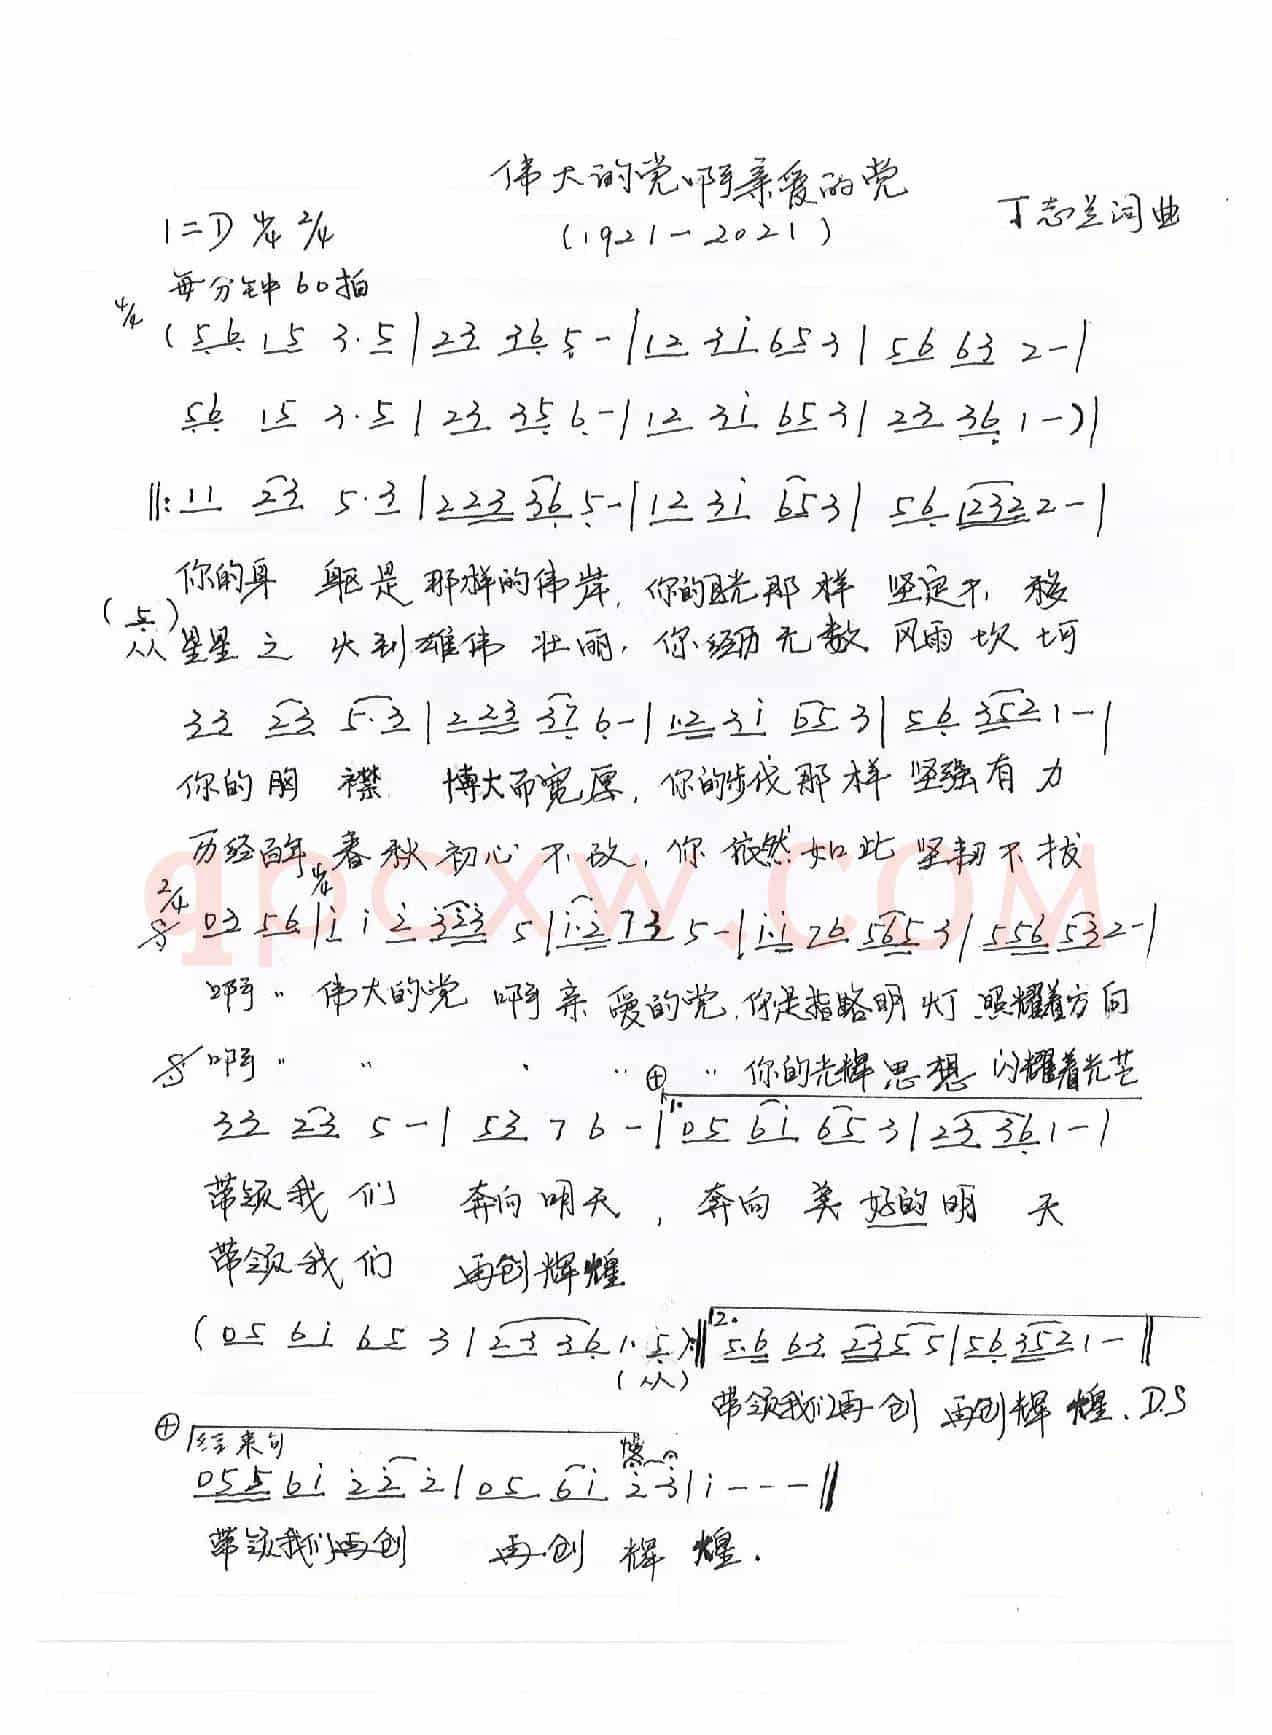 伟大的党啊亲爱的党
(1921—2021)
丁志兰词曲
1=D 4/4 2/4
每分钟60拍
4/4
(56 15 3·5|23 36 5-|12 3i 653|56 63 2-|
56 15 3·5|23 35 6-|12 3i 653|23 36 1-)|
‖:11 23 5·3|223 36 5-|12 3i 653|56 1232 2-|
你的身 躯是那样的伟岸,你的目光那样 坚定不 移
(5)
从 星星之 火到雄伟 壮丽,你经历无数 风雨坎 坷
33 23 5·3|223 37 6-|1·2 3i 653|56 352 1-|
你的胸 襟 博大而宽厚,你的步伐那样 坚强有力
历经百年 春秋初心不改,你依然如此坚韧不拔
2/4 4/4
03 56|i i 2 323 5|i·2 73 5-|i·i 76 565 3|556 53 2-|
啊〃 伟大的党 啊亲爱的党,你是指路明灯 照耀着方向
啊〃 〃 〃 〃 你的光辉思想 闪耀着光芒
33 23 5-|53 7 6-|1.05 6i 65 3|23 36 1-|
带领我们 奔向明天,奔向 美好的明 天
带领我们 再创辉煌
(05 6i 65 3|23 36 1·5):‖2.5·6 63 235 5|56 352 1-‖
(从)
带领我们再创 再创辉煌.D.S
结束句
055 6i 22 2|05 6i 2 3|i---‖
带领我们再创 再创 辉 煌.
qpcxw.com